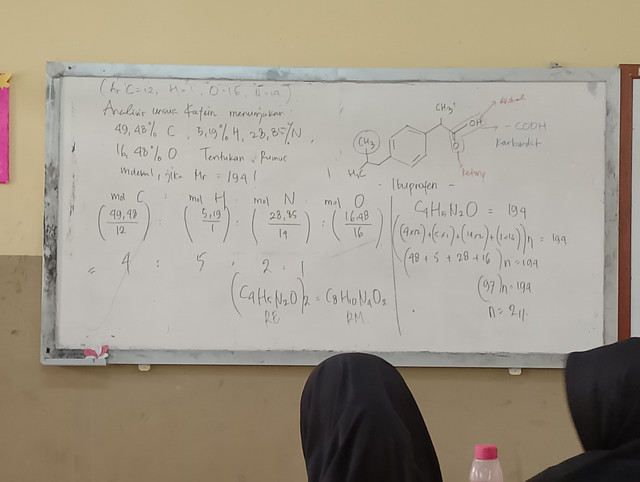 (Ar C=12, H=1, O=16, N=14)
Analisis unsur kafein menunjukan
49,48% C, 5,19% H, 28,85% N
16,48% O Tentukan Rumus
molekul, jika Mr = 194!
mol C : mol H : mol N : mol O
(49,48/12) : (5,19/1) : (28,85/14) : (16,48/16)
= 4 : 5 : 2 : 1
(C4H5N2O)2 = C8H10N4O2
RE RM
CH3
OH
O
- COOH
Karboksilat
CH3
H3C
keton
- Ibuprofen -
C4H5N2O = 194
((4x12)+(5x1)+(14x2)+(1x16))n = 194
(48+5+28+16)n = 194
(97)n = 194
n = 2//